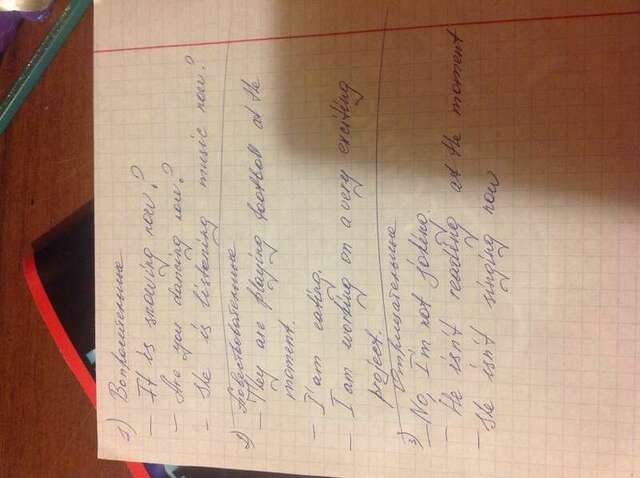 1) Вопросительные
– It is snowing now?
– Are you dancing now?
– She is listening music now?
2) Повествовательные
– They are playing football at the
moment.
– I'am eating.
– I am working on a very exciting
project.
3) Отрицательные
– No, I'm not joking.
– He isn't reading at the moment
– She isn't singing now